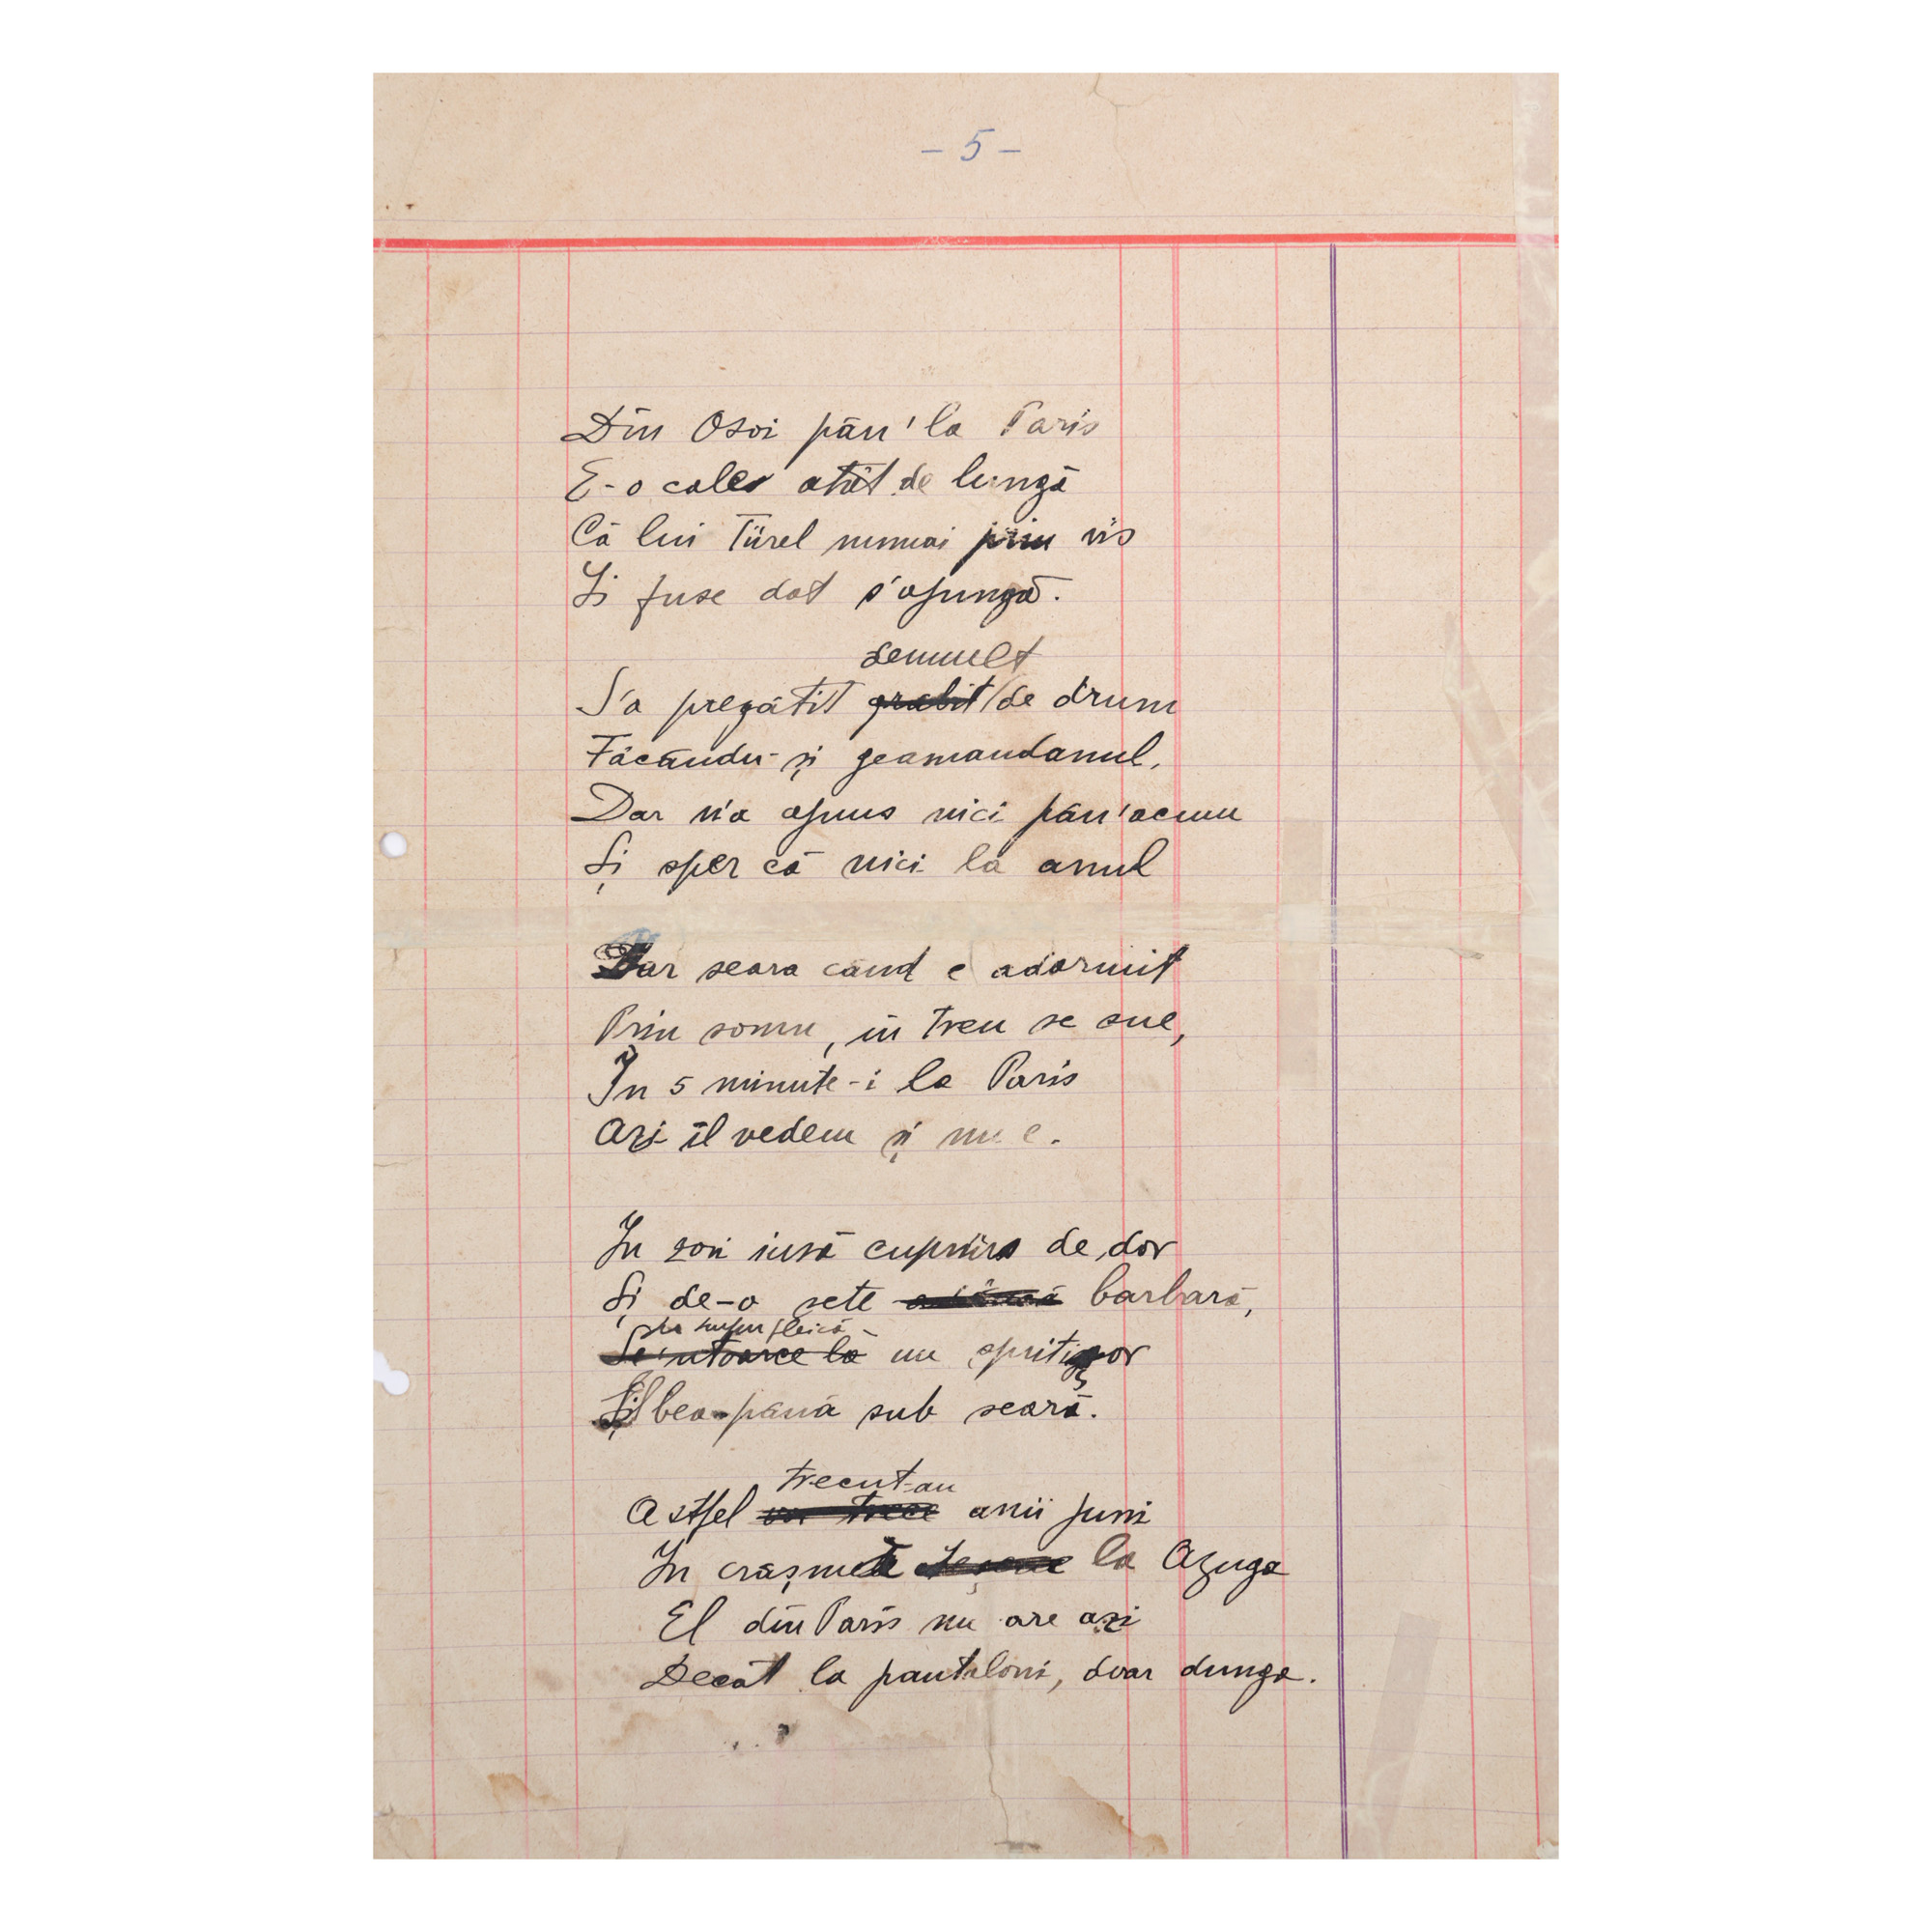 - 5 -
Din Osoi pân' la Paris
E-o cale atât de lungă
Că lui Türel numai prin vis
Îi fuse dat s'ajungă.
demult
S'a pregătit grabit de drum
Făcându-și geamandanul,
Dar n'a ajuns nici pân'acum
Și sper că nici la anul
Dar seara când e adormit
Prin somn, în tren se sue,
În 5 minute-i la Paris
Azi îl vedem și nu e.
În zori însă cuprins de dor
Și de-o sete barbară,
Se'ntoarce la un sprițișor
Și bea până sub seară.
trecut-au
Astfel vor trece anii juni
În crâșmele la Azuga
El din Paris nu are azi
Decât la pantaloni, doar dunga.